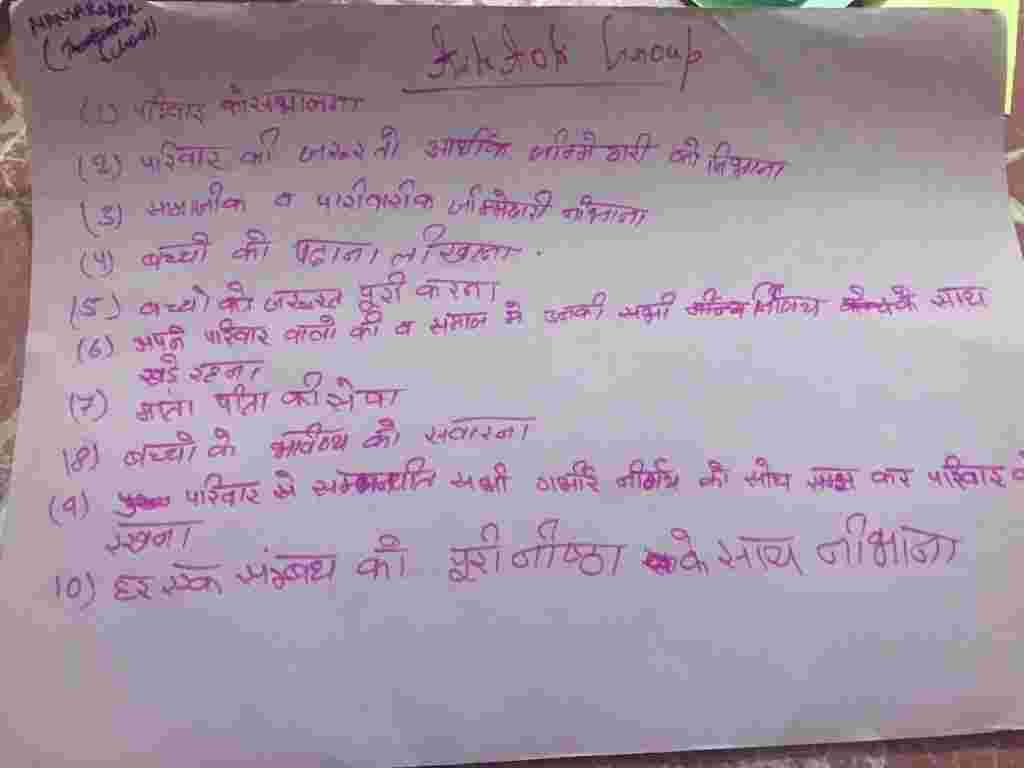 Group
(1) परिवार को सम्भालना
(2) परिवार की जरूरतो आर्थिक जीम्मेदारी को निभाना
(3) समाजीक व पारीवारीक जीम्मेदारी नीभाना
(4) बच्चो को पढाना लीखाना
(5) बच्चो की जरूरत पूरी करना
(6) अपने परिवार वालो की व समाज मे उनकी सभी निर्णय के साथ
खडे रहना
(7) माता पीता की सेवा
(8) बच्चो के भविष्य को सवारना
(9) परिवार से सभी गम्भीर नीर्णय को सोच समझ कर परिवार
रखना
10) हर एक संम्बध को पूरी नीष्ठा के साथ नीभाना